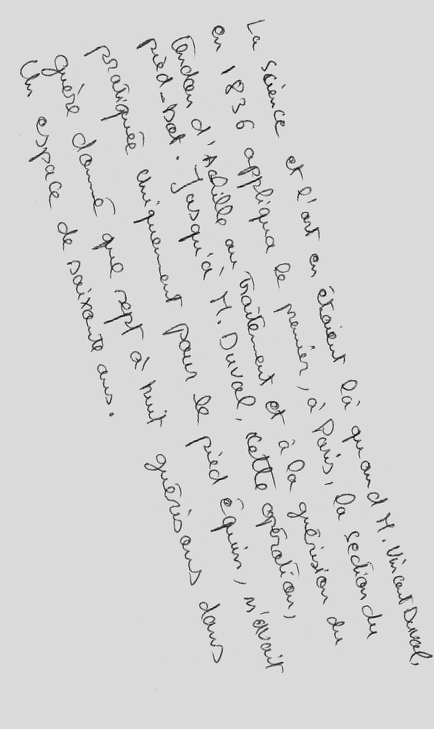 La science et l'art en étaient là quand M. Vincent Duval,
en 1836 appliqua le premier, à Paris, la section du
tendon d'Achille au traitement et à la guérison du
pied-bot. Jusqu'à M. Duval, cette opération,
pratiquée uniquement pour le pied équin, n'avait
guère donné que sept à huit guérisons dans
un espace de soixante ans.